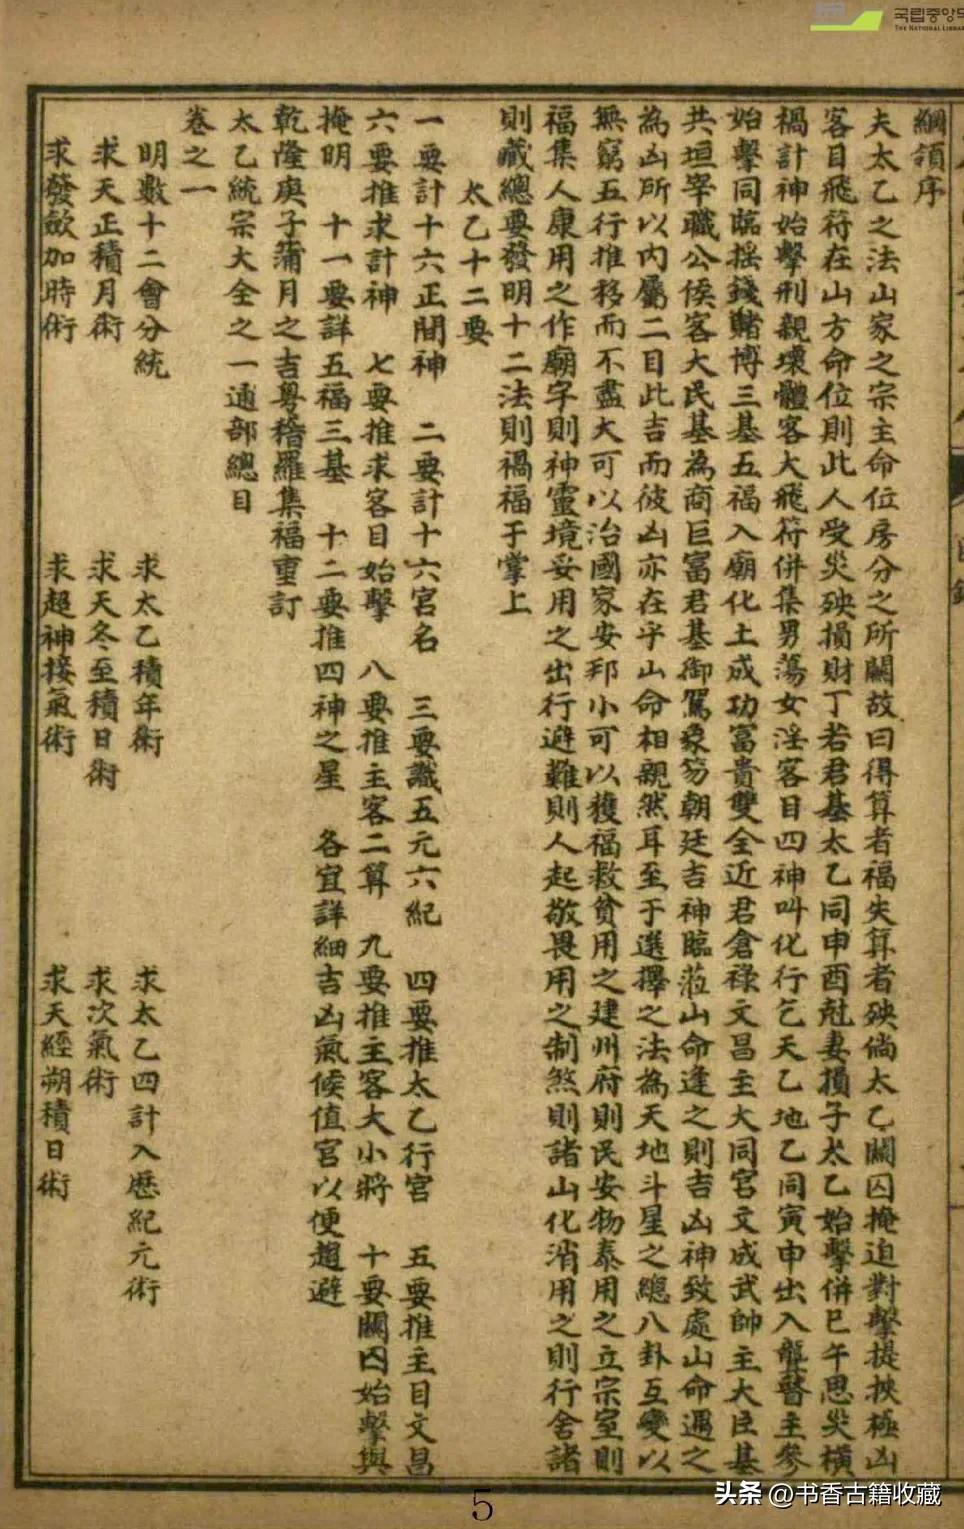 국립중앙도
THE NATIONAL LIBRA
綱領序
夫太乙之法山家之宗主命位房分之所關故曰得算者福失算者殃倘太乙關囚掩迫對擊提挾極凶
客目飛符在山方命位則此人受災殃損財丁若君基太乙同申酉尅妻損子太乙始擊併巳午思災橫
禍計神始擊刑親壞體客大飛符併集男蕩女淫客目四神叫化行乞天乙地乙同寅申出入聾瞽主參
始擊同臨揺錢賭博三基五福入廟化土成功富貴雙全近君倉祿文昌主大同宮文成武帥主大臣基
共垣宰職公侯客大民基為商巨富君基御駕象笏朝廷吉神臨蒞山命逢之則吉凶神致處山命遇之
為凶所以內屬二目此吉而彼凶亦在乎山命相親然耳至于選擇之法為天地斗星之總八卦互變以
無窮五行推移而不盡大可以治國家安邦小可以獲福救貧用之建州府則民安物泰用之立宗室則
福集人康用之作廟宇則神靈境妥用之出行避難則人起敬畏用之制煞則諸山化消用之則行舍諸
則藏總要發明十二法則禍福于掌上
太乙十二要
一要計十六正間神 二要計十六宮名 三要識五元六紀 四要推太乙行宮 五要推主目文昌
六要推求計神 七要推求客目始擊 八要推主客二算 九要推主客大小將 十要關囚始擊與
掩明 十一要詳五福三基 十二要推四神之星 各宜詳細吉凶氣候值宮以便趨避
乾隆庚子蒲月之吉粵稽羅集福重訂
太乙統宗大全之一通部總目
卷之一
明數十二會分統 求太乙積年術 求太乙四計入歷紀元術
求天正積月術 求天冬至積日術 求次氣術
求發歛加時術 求超神接氣術 求天經朔積日術
5
头条 @书香古籍收藏